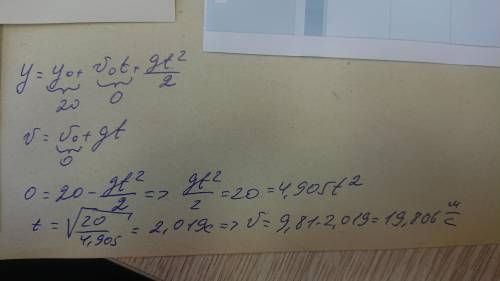 y = y₀ + v₀t + gt²/2
20 0
v = v₀ + gt
0
0 = 20 - gt²/2 => gt²/2 = 20 = 4,905t²
t = √(20/4,905) = 2,019с => v = 9,81·2,019 = 19,806 м/с